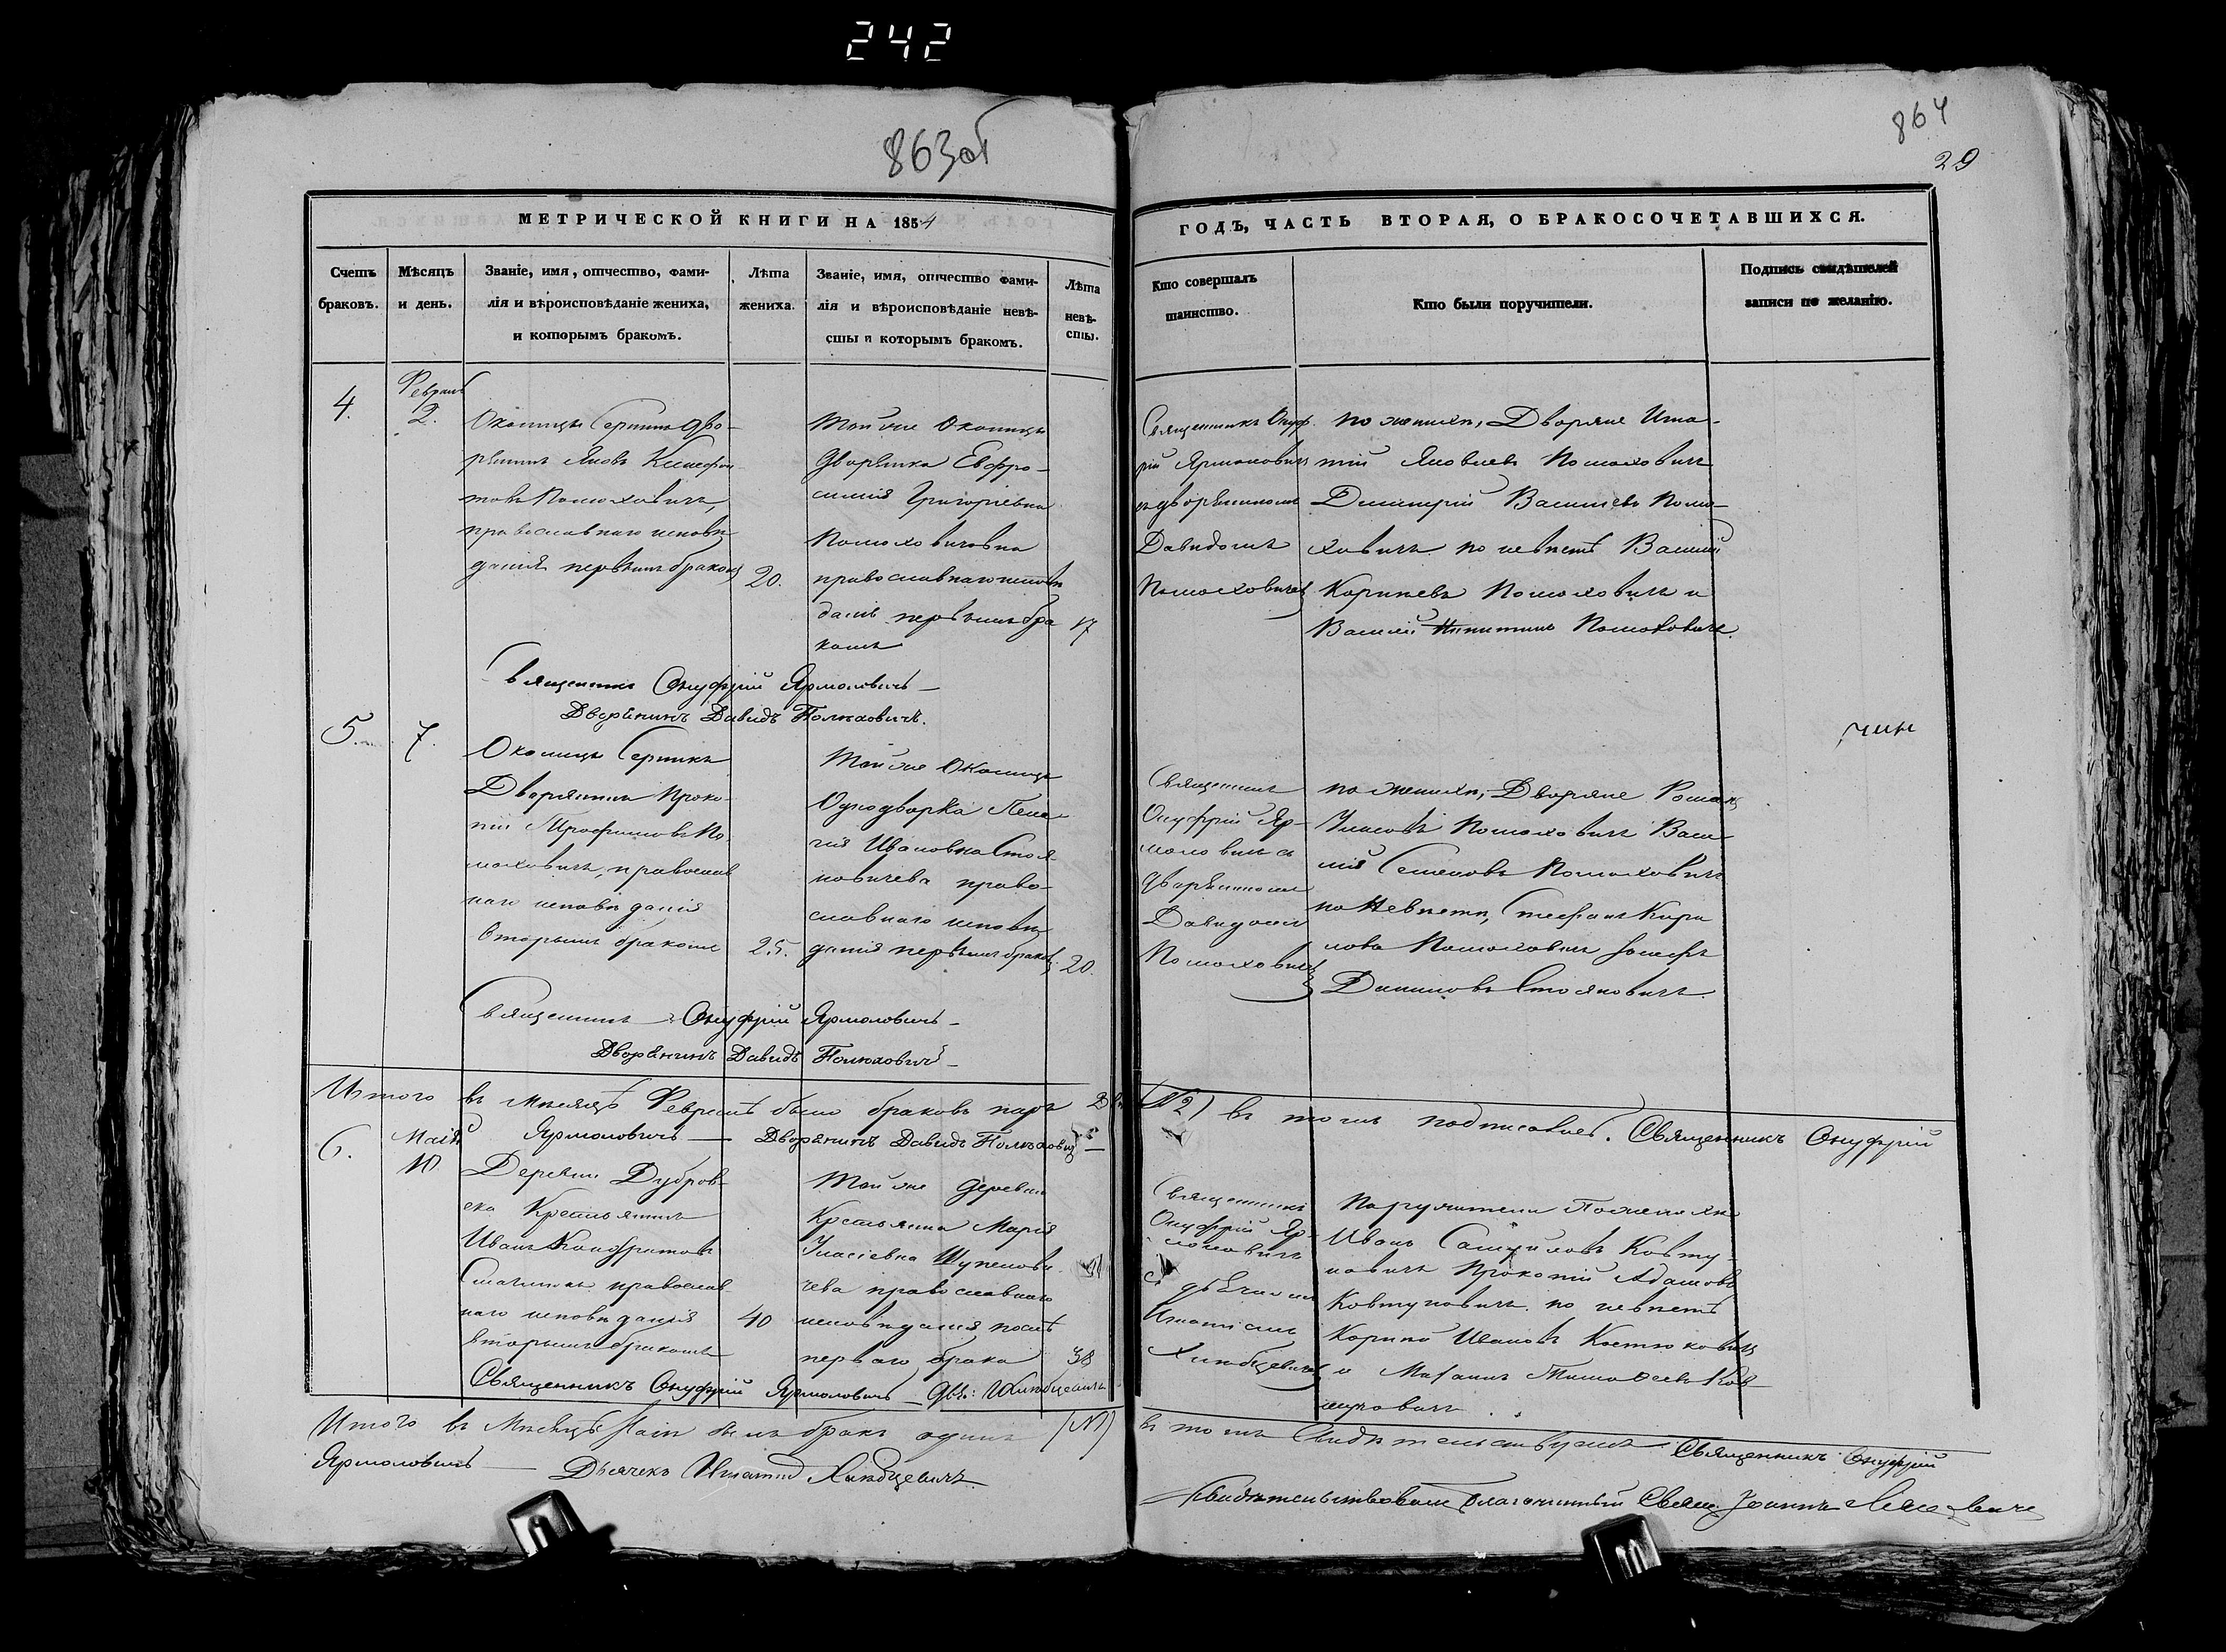 242
863об
864
29
МЕТРИЧЕСКОЙ КНИГИ НА 1854
ГОДЪ, ЧАСТЬ ВТОРАЯ, О БРАКОСОЧЕТАВШИХСЯ.
Счетъ
браковъ.
Мѣсяцъ
и день.
Званіе, имя, отчество, фами-
лія и вѣроисповѣданіе жениха,
и которымъ бракомъ.
Лѣта
жениха.
Званіе, имя, отчество фами-
лія и вѣроисповѣданіе невѣ-
сты и которымъ бракомъ.
Лѣта
невѣ-
сты.
Кто совершалъ
таинство.
Кто были поручители.
Подпись свидѣтелей
записи по желанію.
4.
2.
Околицы Серникъ дво-
рянинъ Яковъ
Полюховичъ,
православнаго исповѣ
данія первымъ бракомъ
20.
Той же Околицы
Дворянка Евфро-
синія Григоріевна
Полюховичовна
православнаго исповѣ
данія первымъ бра
комъ
17
Священникъ Онуф
рій Ярмоловичъ
съ дворяниномъ
Давидомъ
Полюховичемъ
по женихѣ, Дворяне Игна-
тій Яковлевъ Полюховичъ
Димитрій Васильевъ Полю-
ховичъ по невѣстѣ Василій
Корнѣевъ Полюховичъ и
Василій Никитинъ Полюховичъ.
Священникъ Онуфрій Ярмоловичъ —
Дворянинъ Давидъ Полюховичъ.
5.
7.
Околицы Серникъ
Дворянинъ Проко-
пій Трофимовъ По-
люховичъ, православ
наго исповѣданія
вторымъ бракомъ
25.
Той же Околицы
Однодворка Пела-
гія Ивановна Стоя-
новичева право-
славнаго исповѣ
данія первымъ бракомъ
20.
Священникъ
Онуфрій Яр-
моловичъ съ
дворяниномъ
Давидомъ
Полюховичемъ
по женихѣ, Дворяне Романъ
Власовъ Полюховичъ Васи
лій Семеновъ Полюховичъ
по невѣстѣ, Стефанъ Кири
ловъ Полюховичъ Іосифъ
Даниловъ Стояновичъ.
Священникъ Онуфрій Ярмоловичъ —
Дворянинъ Давидъ Полюховичъ —
Итого въ Мѣсяцѣ Февралѣ было браковъ паръ
(№2) въ томъ подписались. Священникъ Онуфрій
Ярмоловичъ — Дворянинъ Давидъ Полюховичъ —
6.
10
Деревни Дубров-
ска Крестьянинъ
Иванъ Кондратовъ
православ
наго исповѣданія
вторымъ бракомъ
40
Той же деревни
Крестьянка Марія
Власіевна
чева православнаго
исповѣданія послѣ
перваго брака
38
Священникъ
Онуфрій Яр-
моловичъ
съ дьячкомъ
Игнатіемъ
Поручители По женихѣ
Иванъ Самуиловъ Ковту
новичъ Прокопій Адамовъ
Ковтуновичъ. по невѣстѣ
Корнѣй Ивановъ Костюковичъ
и Ков
туновичъ
Священникъ Онуфрій Ярмоловичъ —
Итого въ Мѣсяцѣ Маіи былъ бракъ одинъ (№1)
въ томъ Свидѣтельствуемъ Священникъ Онуфрій
Ярмоловичъ — Дьячекъ Игнатій
Свидѣтельствовалъ Благочинный Свящ. Іоаннъ